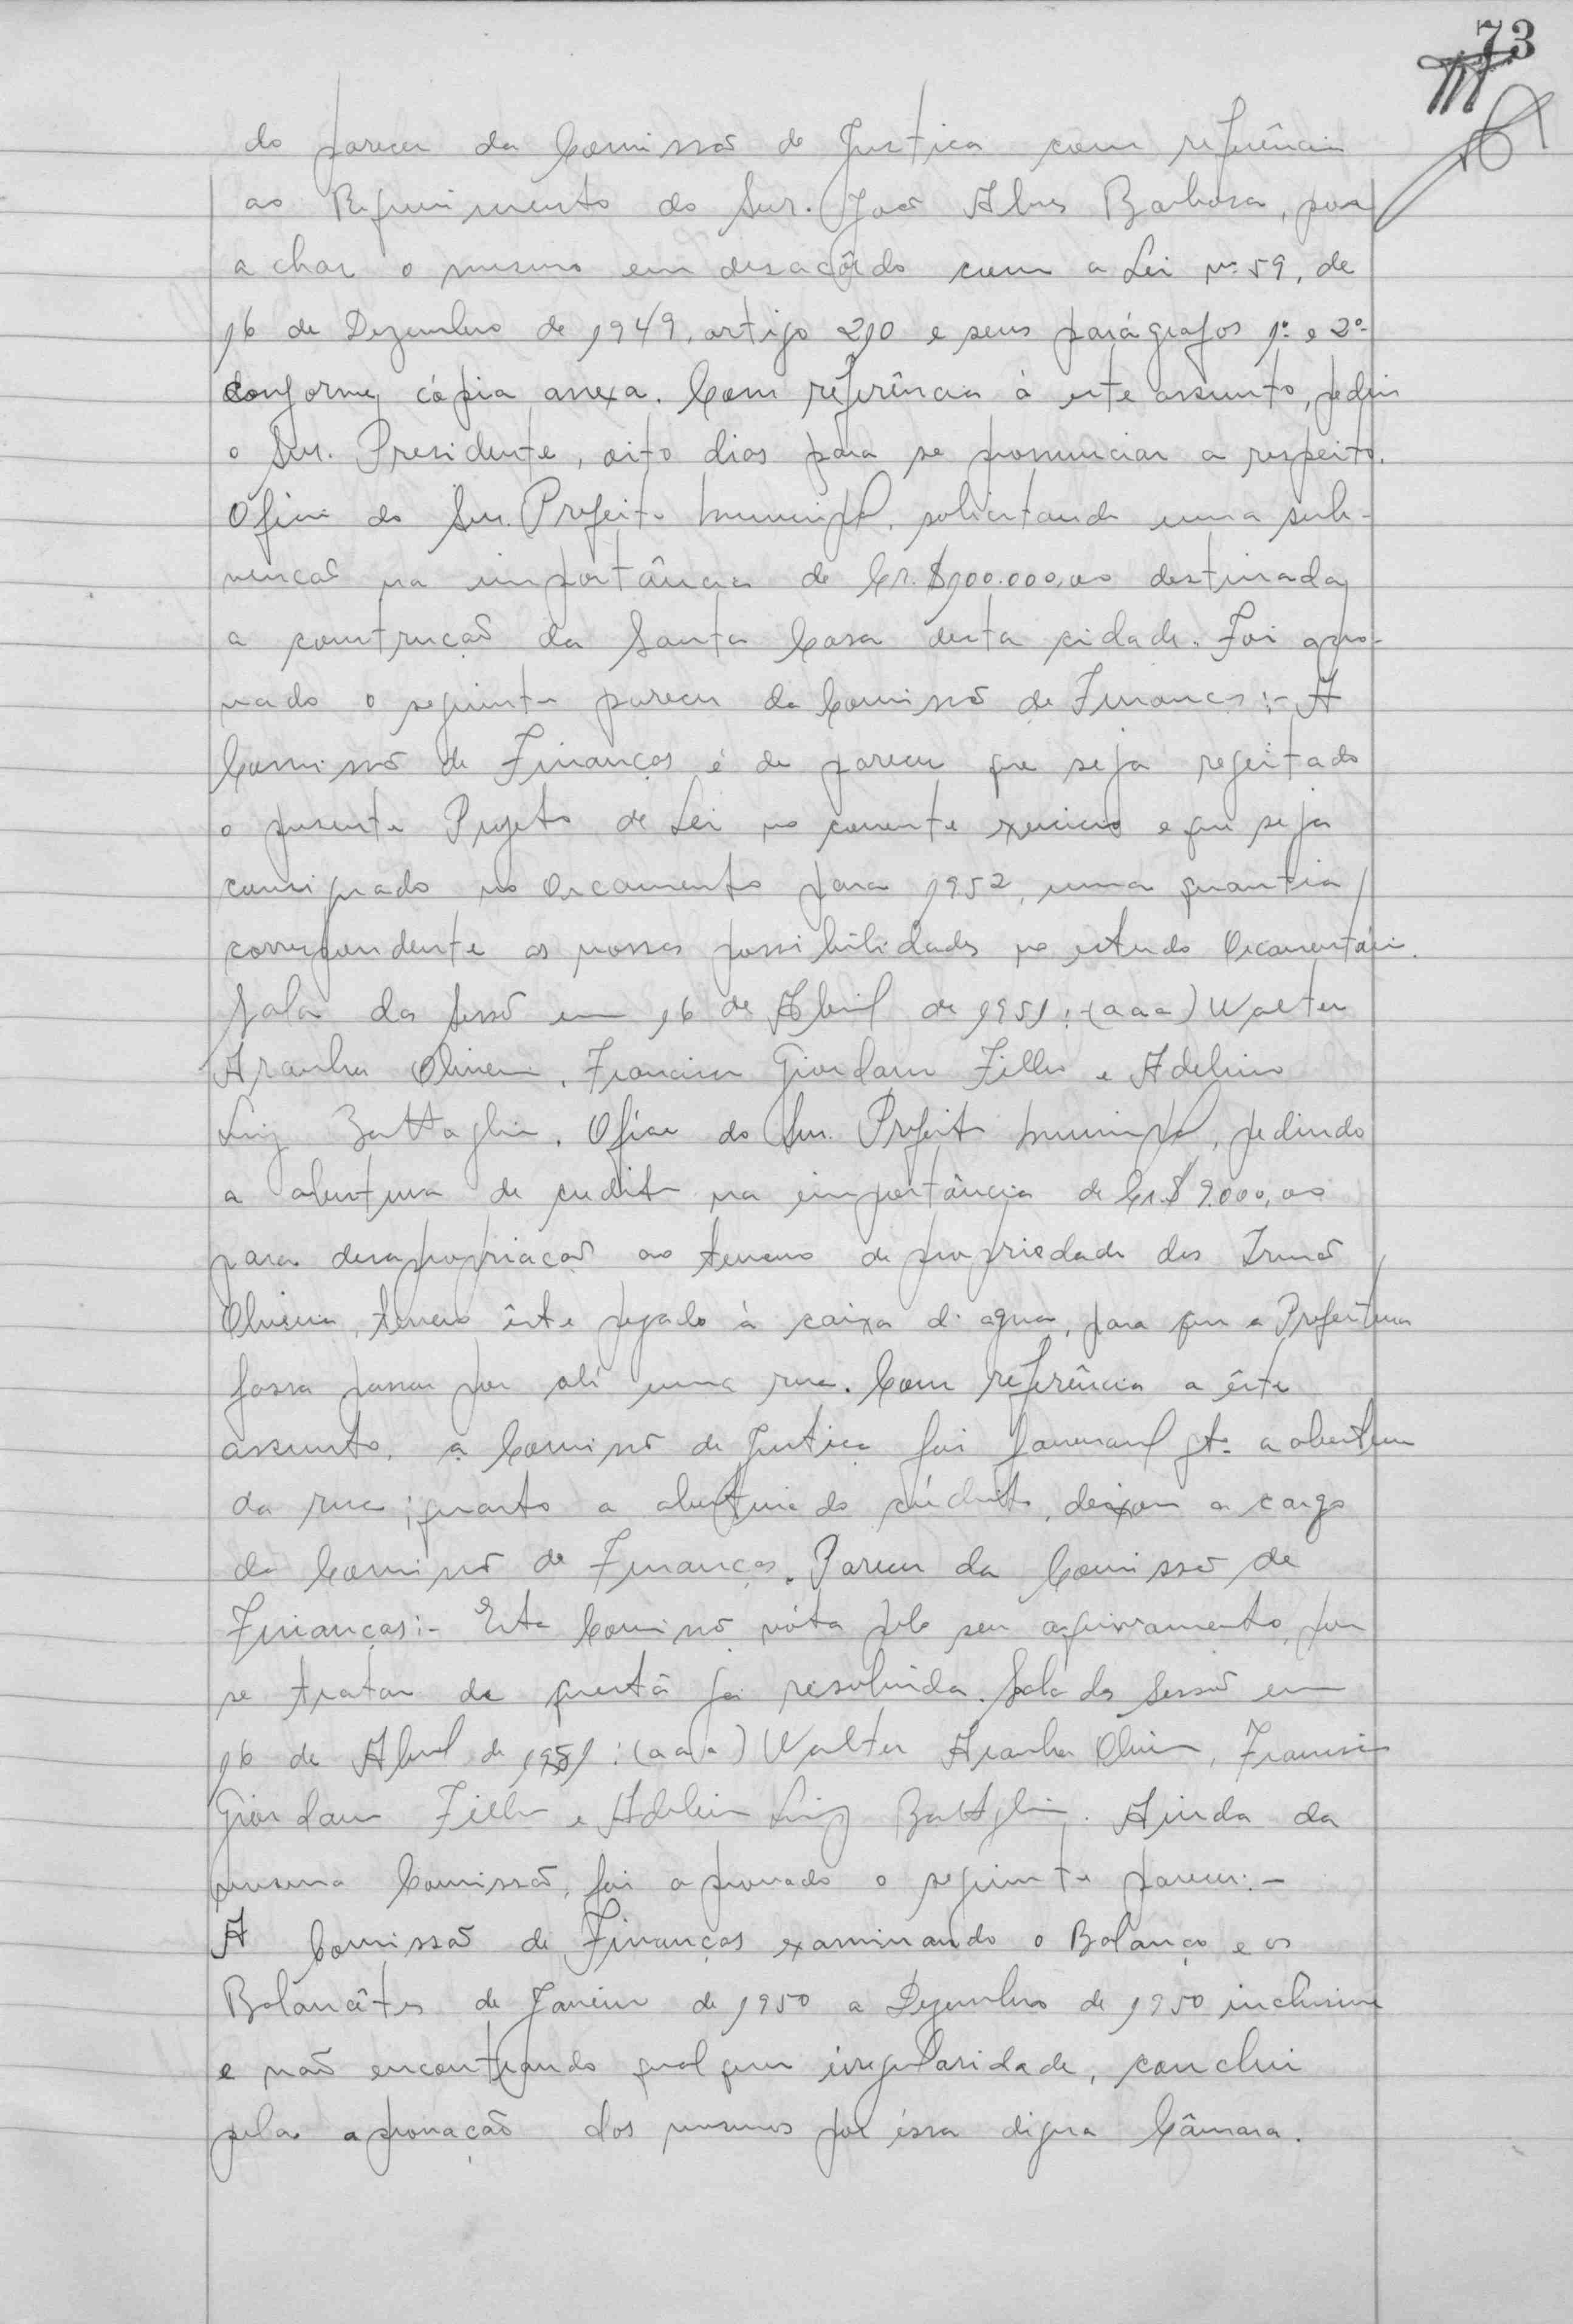 73
do parecer da Comissão de Justica com referência
ao Requerimento do Snr. João Alves Barbosa, por
achar o mesmo em desacôrdo com a Lei nº 59, de
16 de Dezembro de 1949, artigo 210 e seus parágrafos 1º e 2º
conforme cópia anexa. Com referência à este assunto, pediu
o Snr. Presidente, oito dias para se pronunciar a respeito.
Oficio do Snr. Prefeito Municipal, solicitando uma sub-
vencão na importância de Cr.$100.000,00 destinada
a construcão da Santa Casa desta cidade. Foi apro-
vado o seguinte parecer da Comissão de Financas:- A
Comissão de Finanças é de parecer que seja regeitado
o presente Projeto de Lei no corrente exercicio e que seja
consignado no Orcamento para 1952, uma quantia
correspondente as nossas possibilidades no estudo Orcamentário.
Sala da Sessão em 16 de Abril de 1951:-(aaa) Walter
Aranha Oliveira, Francisco Giordano Filho e Adelino
Luiz Battaglia. Oficio do Snr. Prefeito Municipal, pedindo
a abertura de credito na importância de Cr.$ 9.000,00
para desapropriacão ao terreno de propriedade dos Irmãos
Oliveira, terreno êste pegado à caixa d'agua, para que a Prefeitura
possa passar por ali uma rua. Com referência a êste
assunto, a Comissão de Justiça foi favoravel qto. a abertura
da rua; quanto a abertura do crédito, deixou a cargo
da Comissão de Finanças. Parecer da Comissão de
Finanças:- Esta Comissão vóta pelo seu arquivamento, por
se tratar de questão já resolvida. Sala da Sessão em
16 de Abril de 1951:(aaa) Walter Aranha Oliveira, Francisco
Giordano Filho e Adelino Luiz Battaglia. Ainda da
mesma Comissão, foi aprovado o seguinte parecer:-
A Comissão de Finanças examinando o Balanço e os
Balancêtes de Janeiro de 1950 a Dezembro de 1950 inclusive
e não encontrando qualquer irregularidade, conclui
pela aprovação dos mesmos por éssa digna Câmara.